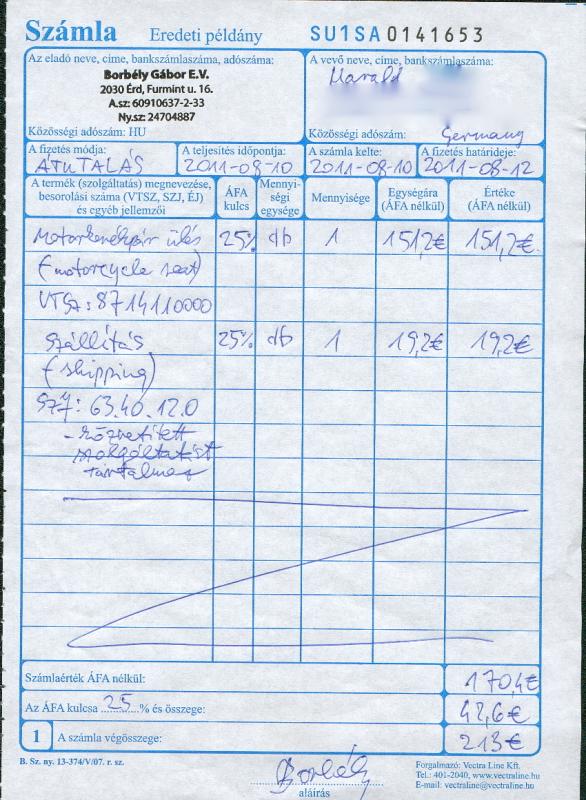 Számla Eredeti példány SU1SA 0141653
Az eladó neve, címe, bankszámlaszáma, adószáma:
Borbély Gábor E.V.
2030 Érd, Furmint u. 16.
A.sz: 60910637-2-33
Ny.sz: 24704887
Közösségi adószám: HU
A vevő neve, címe, bankszámlaszáma:
Harald
Közösségi adószám: Germany
A fizetés módja: A teljesítés időpontja: A számla kelte: A fizetés határideje:
ÁTUTALÁS 2011-08-10 2011-08-10 2011-08-12
A termék (szolgáltatás) megnevezése, besorolási száma (VTSZ, SZJ, ÉJ) és egyéb jellemzői ÁFA kulcs Mennyiségi egysége Mennyisége Egységára (ÁFA nélkül) Értéke (ÁFA nélkül)
Motorkerékpár ülés 25% db 1 151,2€ 151,2€
(motorcycle seat)
VTSz: 8714110000
Szállítás 25% db 1 19,2€ 19,2€
(shipping)
SZJ: 63.40.12.0
- közvetített
szolgáltatást
tartalmaz
Számlaérték ÁFA nélkül: 170,4€
Az ÁFA kulcsa 25 % és összege: 42,6€
1 A számla végösszege: 213€
B. Sz. ny. 13-374/V/07. r. sz.
Borbély
aláírás
Forgalmazó: Vectra Line Kft.
Tel.: 401-2040, www.vectraline.hu
E-mail: vectraline@vectraline.hu